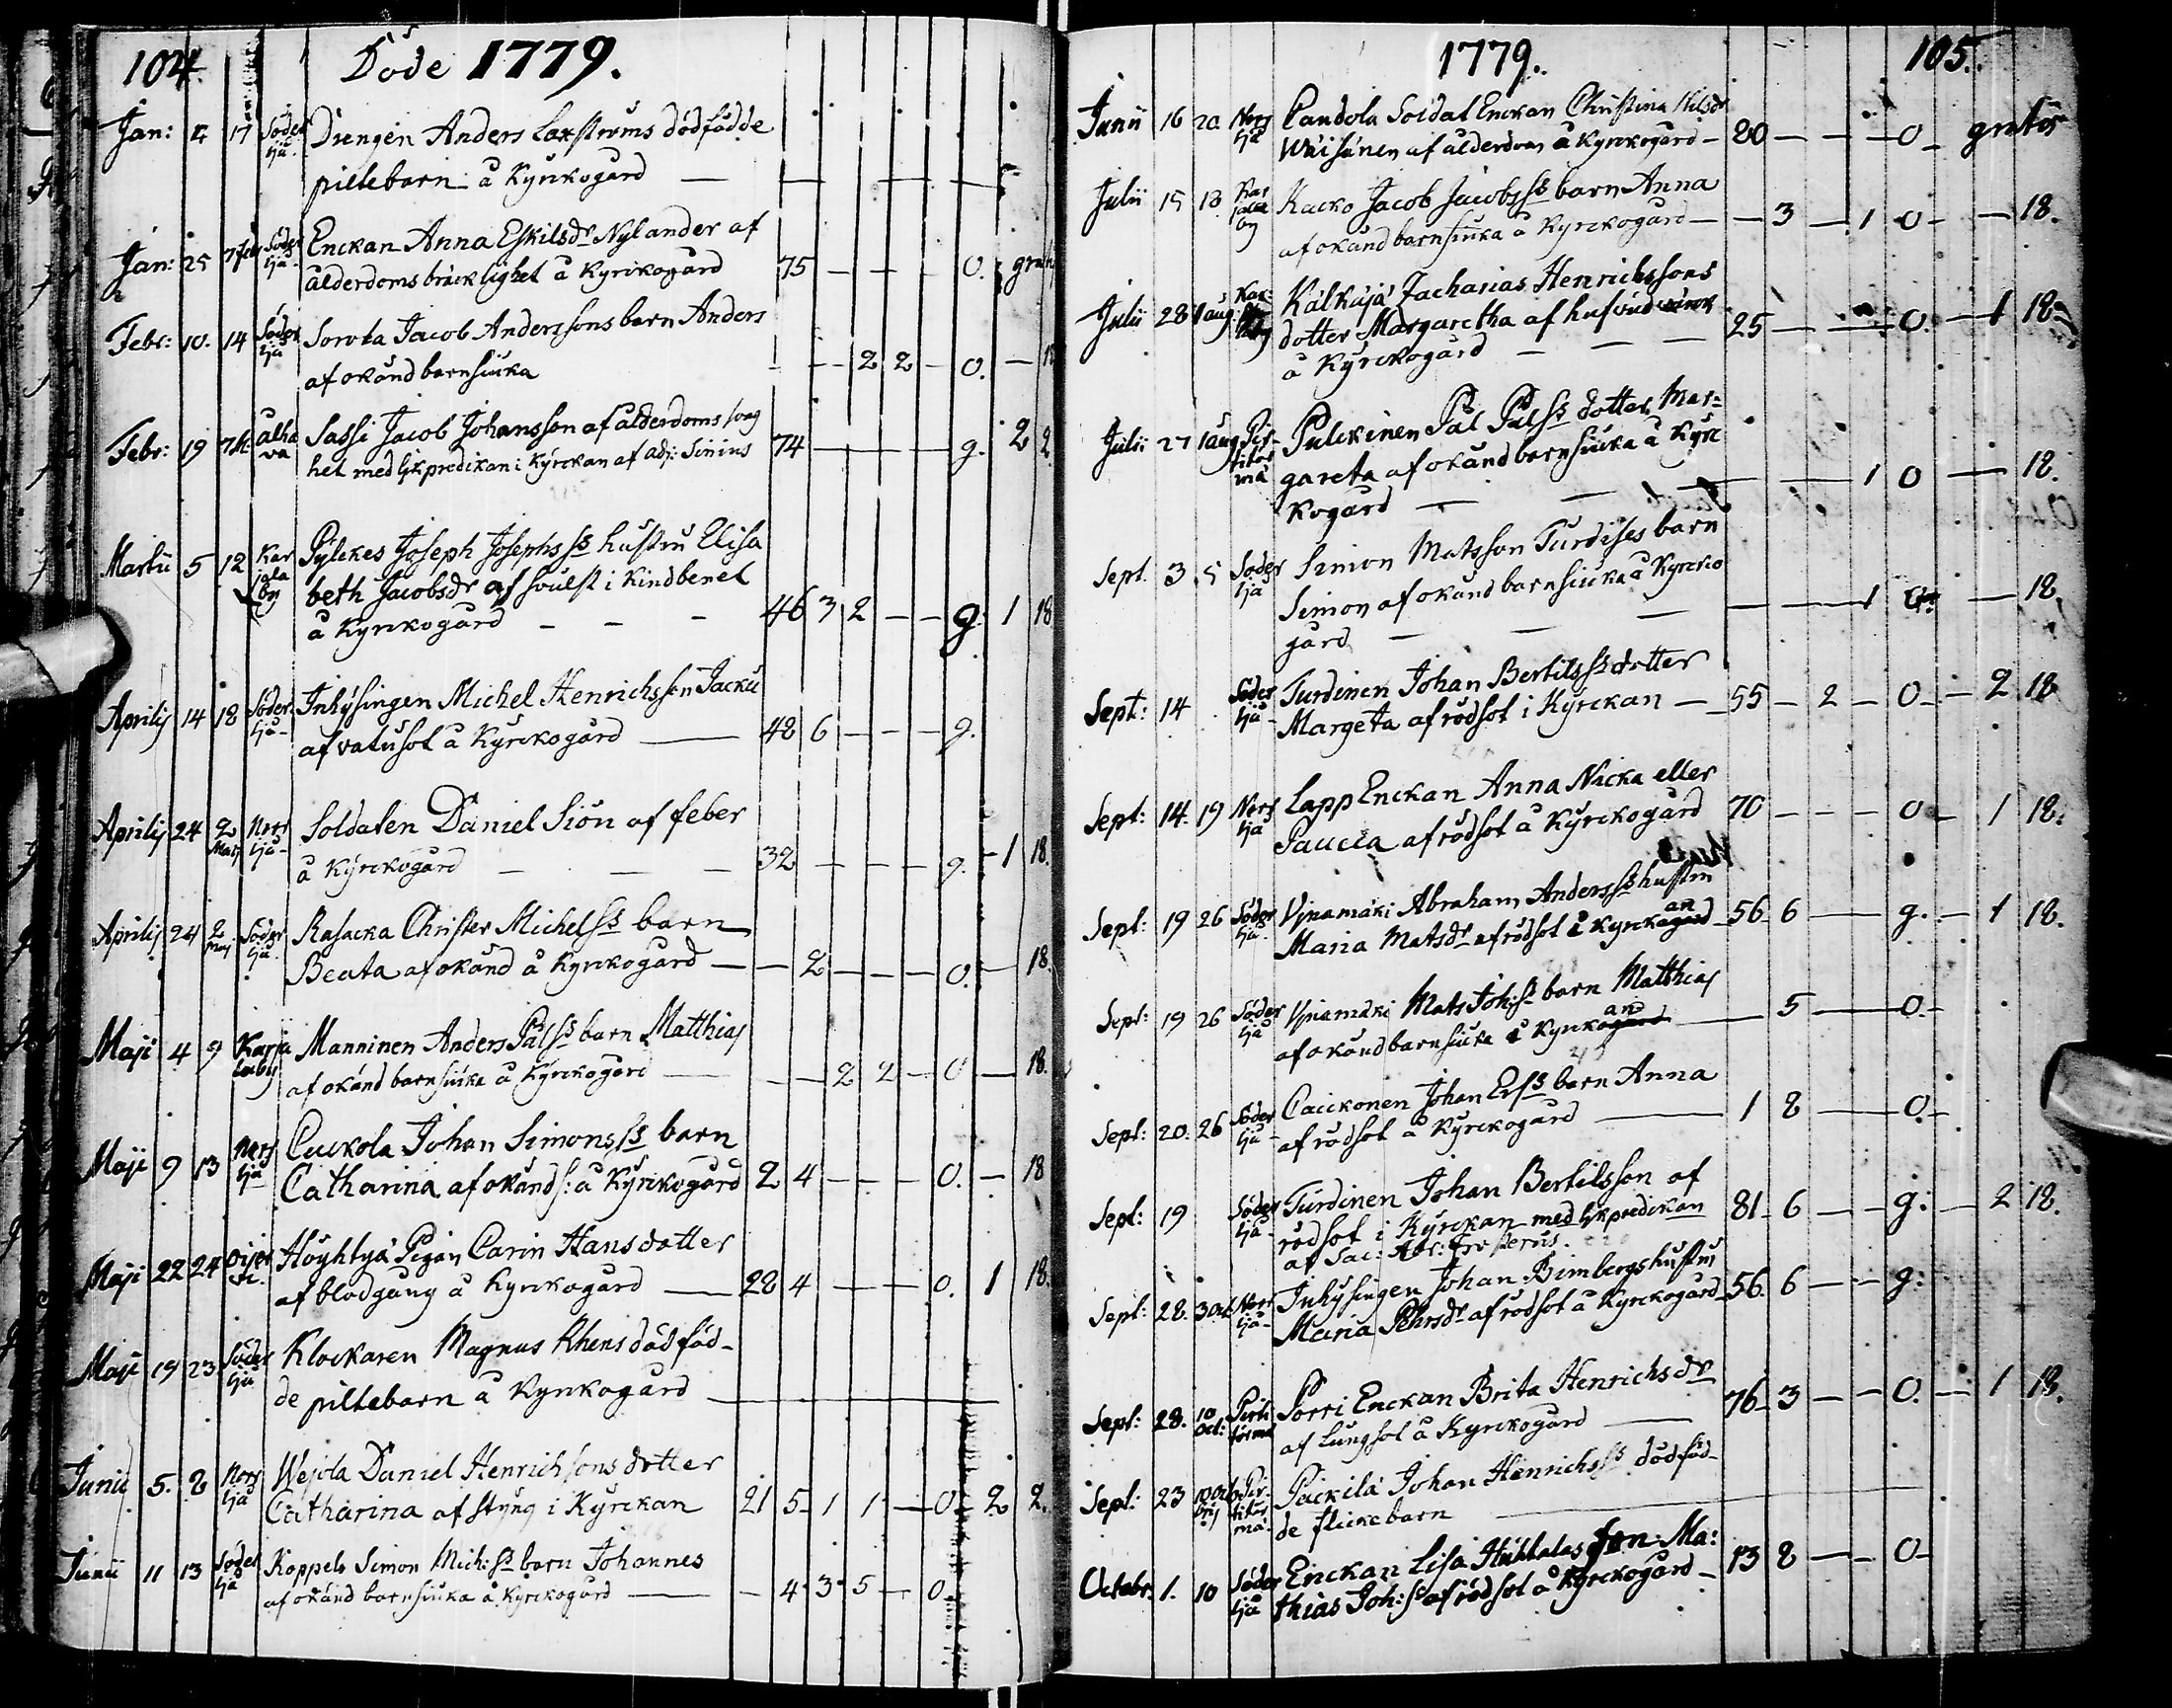 104. Döde 1779.
Jan: 2 17 Söder ljä Drengen Anders Laxströms dödfödde
piltebarn å Kyrkogård
Jan: 25 7 feb Söder ljä Enckan Anna Eskilsdr Nylander af
ålderdoms bräcklighet å Kyrkogård 75 — — — 0. gratis
Febr: 10. 14 Söder ljä Sorvta Jacob Anderssons barn Anders
af okänd barnsiuka — — 2 2 — 0. — 18
Febr: 19 alha va Sassi Jacob Johansson af ålderdoms svag
het med likpredikan i Kyrckan af adj: Sinius 74 — — — g. 2 2.
Martii 5 12 Kar jala by Pylckes Joseph Josephs ss hustru Elisa
beth Jacobsdr af svulst i Kindbenet
å Kyrckogård — — — 46 3 2 — — g. 1 18
Aprilis 14 18 Söder ljä Inhysingen Michel Henrichsson Jacku
af vatusot å Kyrckogård — 48 6 — — — g.
Aprilis 24 2 Maij Norr ljä Soldaten Daniel Siön af feber
å Kyrckogård — — — 32 — — — — g. 1 18.
Aprilis 24 2 Maj Söder ljä Rasacka Christer Michels ss barn
Beata af okänd å Kyrckogård — — 2 — — — 0. — 18.
Maji 4 9 Karja laby Manninen Anders Påls ss barn Matthias
af okänd barnsiuka å Kyrckogård — — 2 2 — 0 — 18.
Maji 9 13 Norr ljä Cuckola Johan Simons ss barn
Catharina af okänd s: å Kyrckogård 2 4 — — — 0. — 18
Maji 22 24 Oijer Höyhtyä Pigan Carin Hansdotter
af blodgång å Kyrckogård — 28 4 — — — 0. 1 18.
Maji 19 23 Söder ljä Klockaren Magnus Rhens dödföd-
de piltebarn å Kyrckogård —
Junii 5. 8 Norr ljä Wejola Daniel Henrichsons dotter
Catharina af styng i Kyrckan 21 5 1 1 — 0 2 2.
Junii 11 13 Söder ljä Koppelo Simon Mich: ss barn Johannes
af okänd barnsiuka å Kyrckogård — — 4 3 5 — 0.
1779. 105.
Junii 16 20 Norr ljä Candola Soldat Enckan Christina Nilsdr
Wäisänen af ålderdom å Kyrckogård — 80 — — — 0 — gratis
Julii 15 18 Kar jala by Kacko Jacob Jacobs ss barn Anna
af okänd barnsiuka å Kyrckogård — — 3 — 1 0 — — 18.
Julii 28 1 aug: Kälkäjä Zacharias Henrichssons
dotter Margaretha af hufvudwärck
å Kyrckogård — — — 25 — — — 0. — 1 18
Julii 27 1 aug Pir- titör mä Pulckinen Pål Påls ss dotter Mar=
gareta af okänd barnsiuka å Kyrc
kogård — — — — — 1 0 — 18.
Sept. 3. 5 Söder ljä Simon Matsson Turdises barn
Simon af okänd barnsiuka å Kyrcko
gård — — — — — 1 — 18.
Sept: 14 Söder ljä Turdinen Johan Bertils ss dotter
Margeta af rödsot i Kyrckan — 55 — 2 — 0 — 2 18
Sept: 14. 19 Norr ljä Lapp Enckan Anna Nicka eller
Paucca af rödsot å Kyrckogård 70 — — — 0 — 1 18.
Sept: 19 26 Söder ljä Vjnamäki Abraham Anders ss hustru
Maria Matsdr af rödsot i Kyrckan 56 6 — g. — 1 18.
Sept: 19 26 Söder ljä Vjnamäki Mats Joh: ss barn Matthias
af okänd barnsiuka i Kyrckan — 5 — 0.
Sept: 20. 26 Söder ljä Caickonen Johan Ers ss barn Anna
af rödsot å Kyrckogård — 1 8 — 0 —
Sept: 19 Söder ljä Turdinen Johan Bertilsson af
rödsot i Kyrckan med likpredikan 81 6 — — g: — 2 18.
af Sac: Abr: Frosterus.
Sept: 28. 3 oct Norr ljä Inhysingen Johan Bimbergs hustru
Maria Pehrsdr af rödsot å Kyrckogård 56 6 — — g:
Sept: 28. 10 Oct: Pirti törmä Porri Enckan Brita Henrichsdr
af lungsot å Kyrckogård — 76 3 — — 0. — 1 18.
Sept: 23 10 octo brij Pir- titör mä Päckilä Johan Henrichs ss dödföd-
de flickebarn —
Octobr: 1. 10 Söder ljä Enckan Lisa Huhtalas son Ma:
thias Joh: ss af rödsot å Kyrckogård — 13 8 — — 0 —